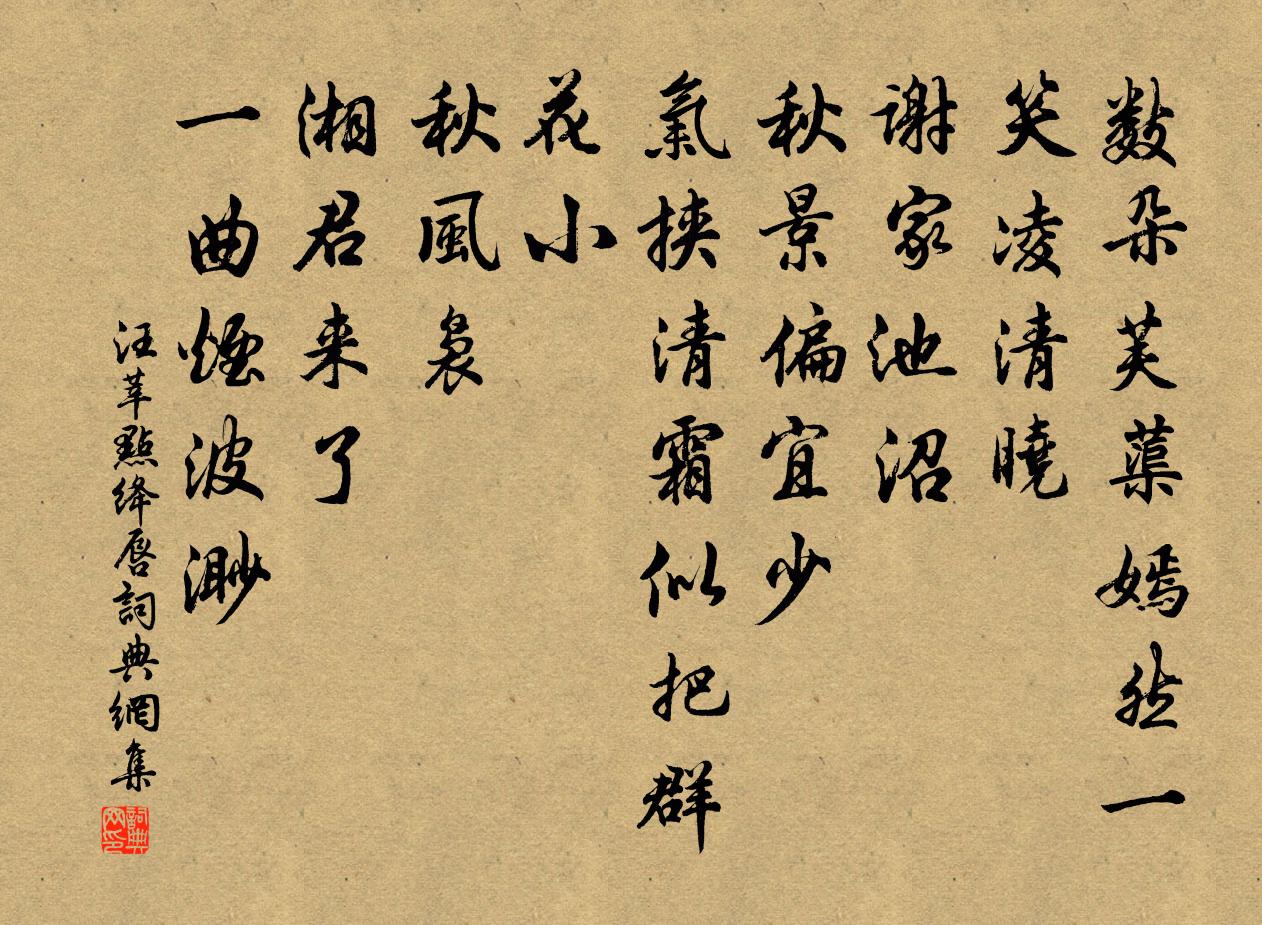 數朵芙蕖嫣然一
笑凌清曉
謝家池沼
秋景偏宜少
氣挾清霜似把群
花小
秋風裊
湘君来了
一曲煙波渺
汪莘點絳唇詞典網集
詞典网印